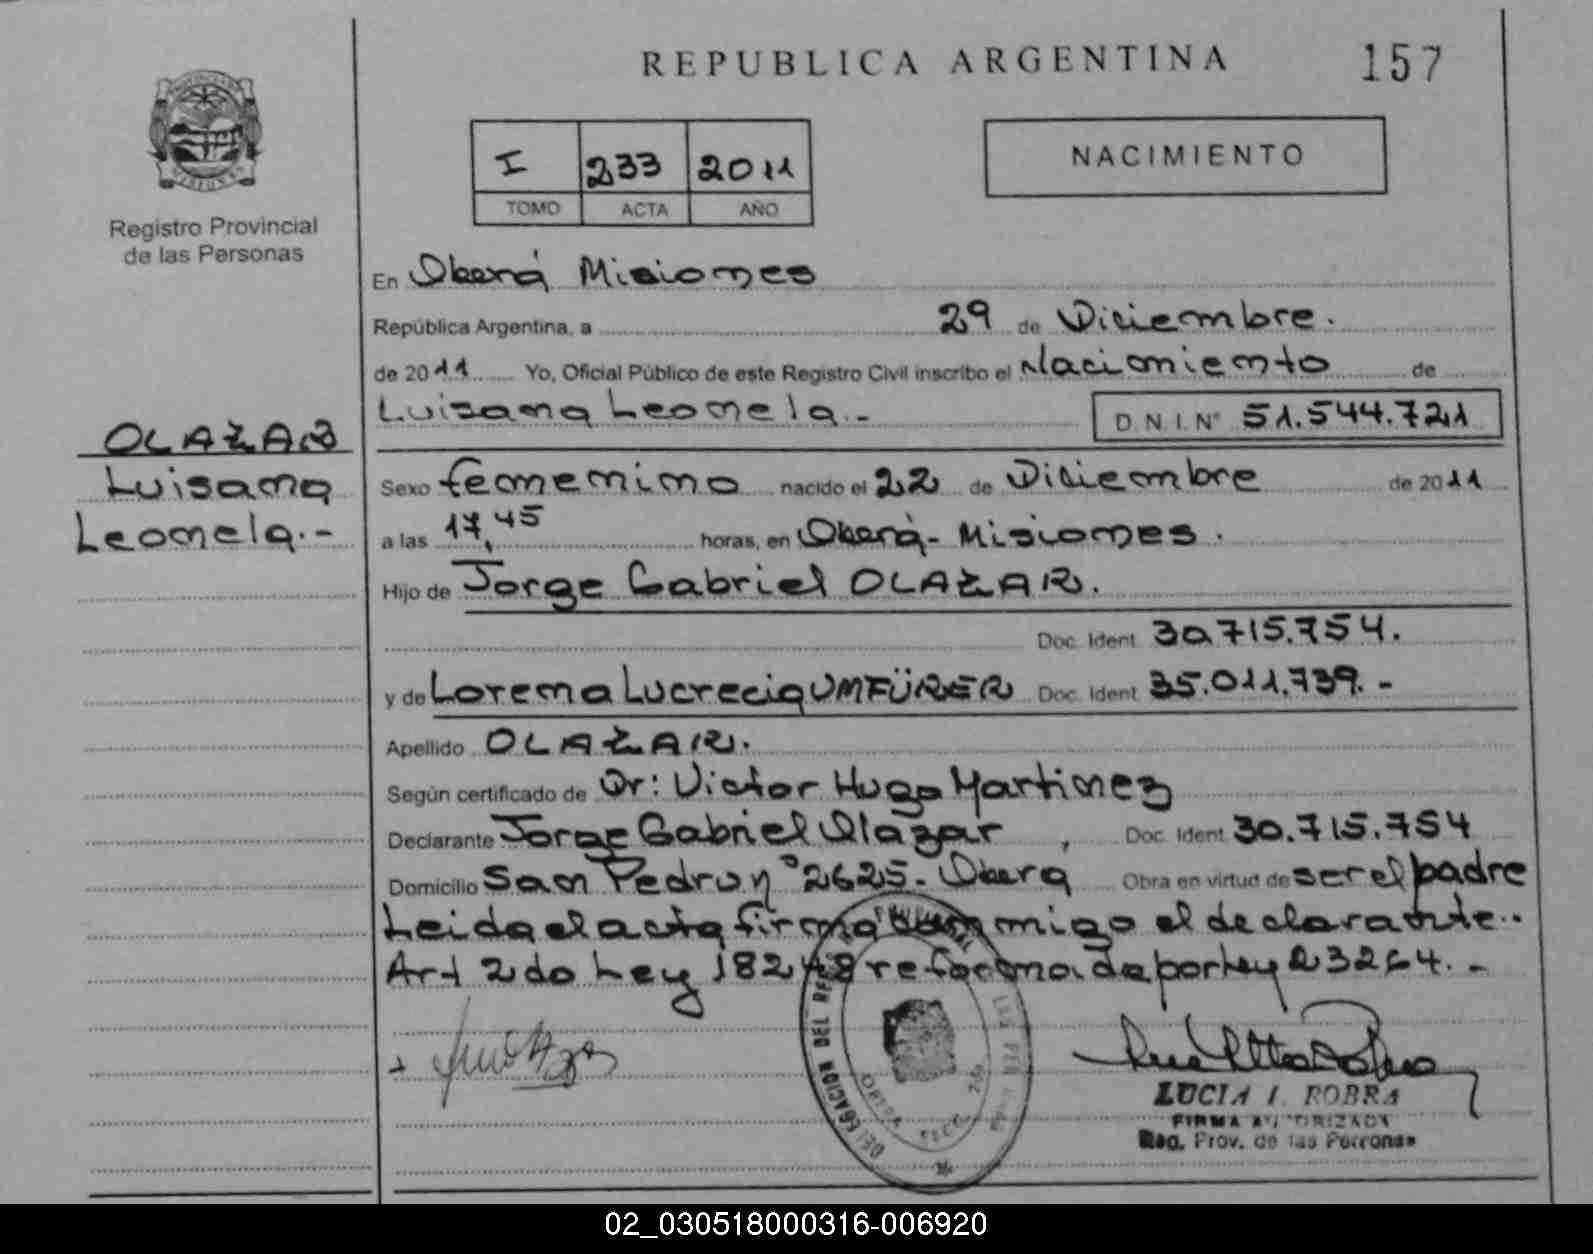 REPUBLICA ARGENTINA
157
I 233 2011
TOMO ACTA AÑO
NACIMIENTO
PROVINCIA DE
MISIONES
Registro Provincial
de las Personas
En Oberá Misiones
República Argentina, a 29 de Diciembre.
de 2011 Yo, Oficial Público de este Registro Civil inscribo el Nacimiento de
Luisana Leonela.-
D.N.I.Nº 51.544.721
OLAZAR
Luisana
Leonela.-
Sexo femenino nacido el 22 de Diciembre de 2011
a las 17,45 horas, en Oberá- Misiones.
Hijo de Jorge Gabriel OLAZAR.
Doc. Ident. 30.715.754.
y de Lorena Lucrecia UMFÜRER Doc. Ident. 35.011.739.-
Apellido OLAZAR.
Según certificado de Dr: Victor Hugo Martinez
Declarante Jorge Gabriel Olazar, Doc. Ident. 30.715.754
Domicilio San Pedro nº 2625- Oberá Obra en virtud de ser el padre
Leida el acta firma conmigo el declarante..
Art 2do Ley 18248 reformada por Ley 23264.-
DELEGACION DEL
LUCIA I. ROBRA
FIRMA AUTORIZADA
Reg. Prov. de las Personas
02_030518000316-006920